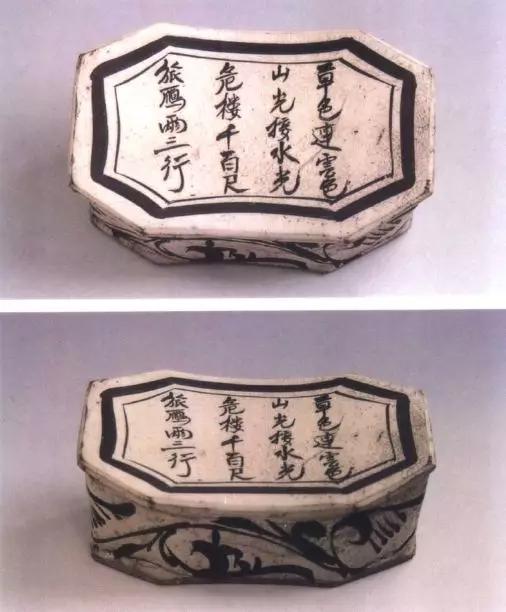 草色連雲色
山光接水光
危楼千百尺
旅鴈兩三行
草色連雲色
山光接水光
危楼千百尺
旅鴈兩三行